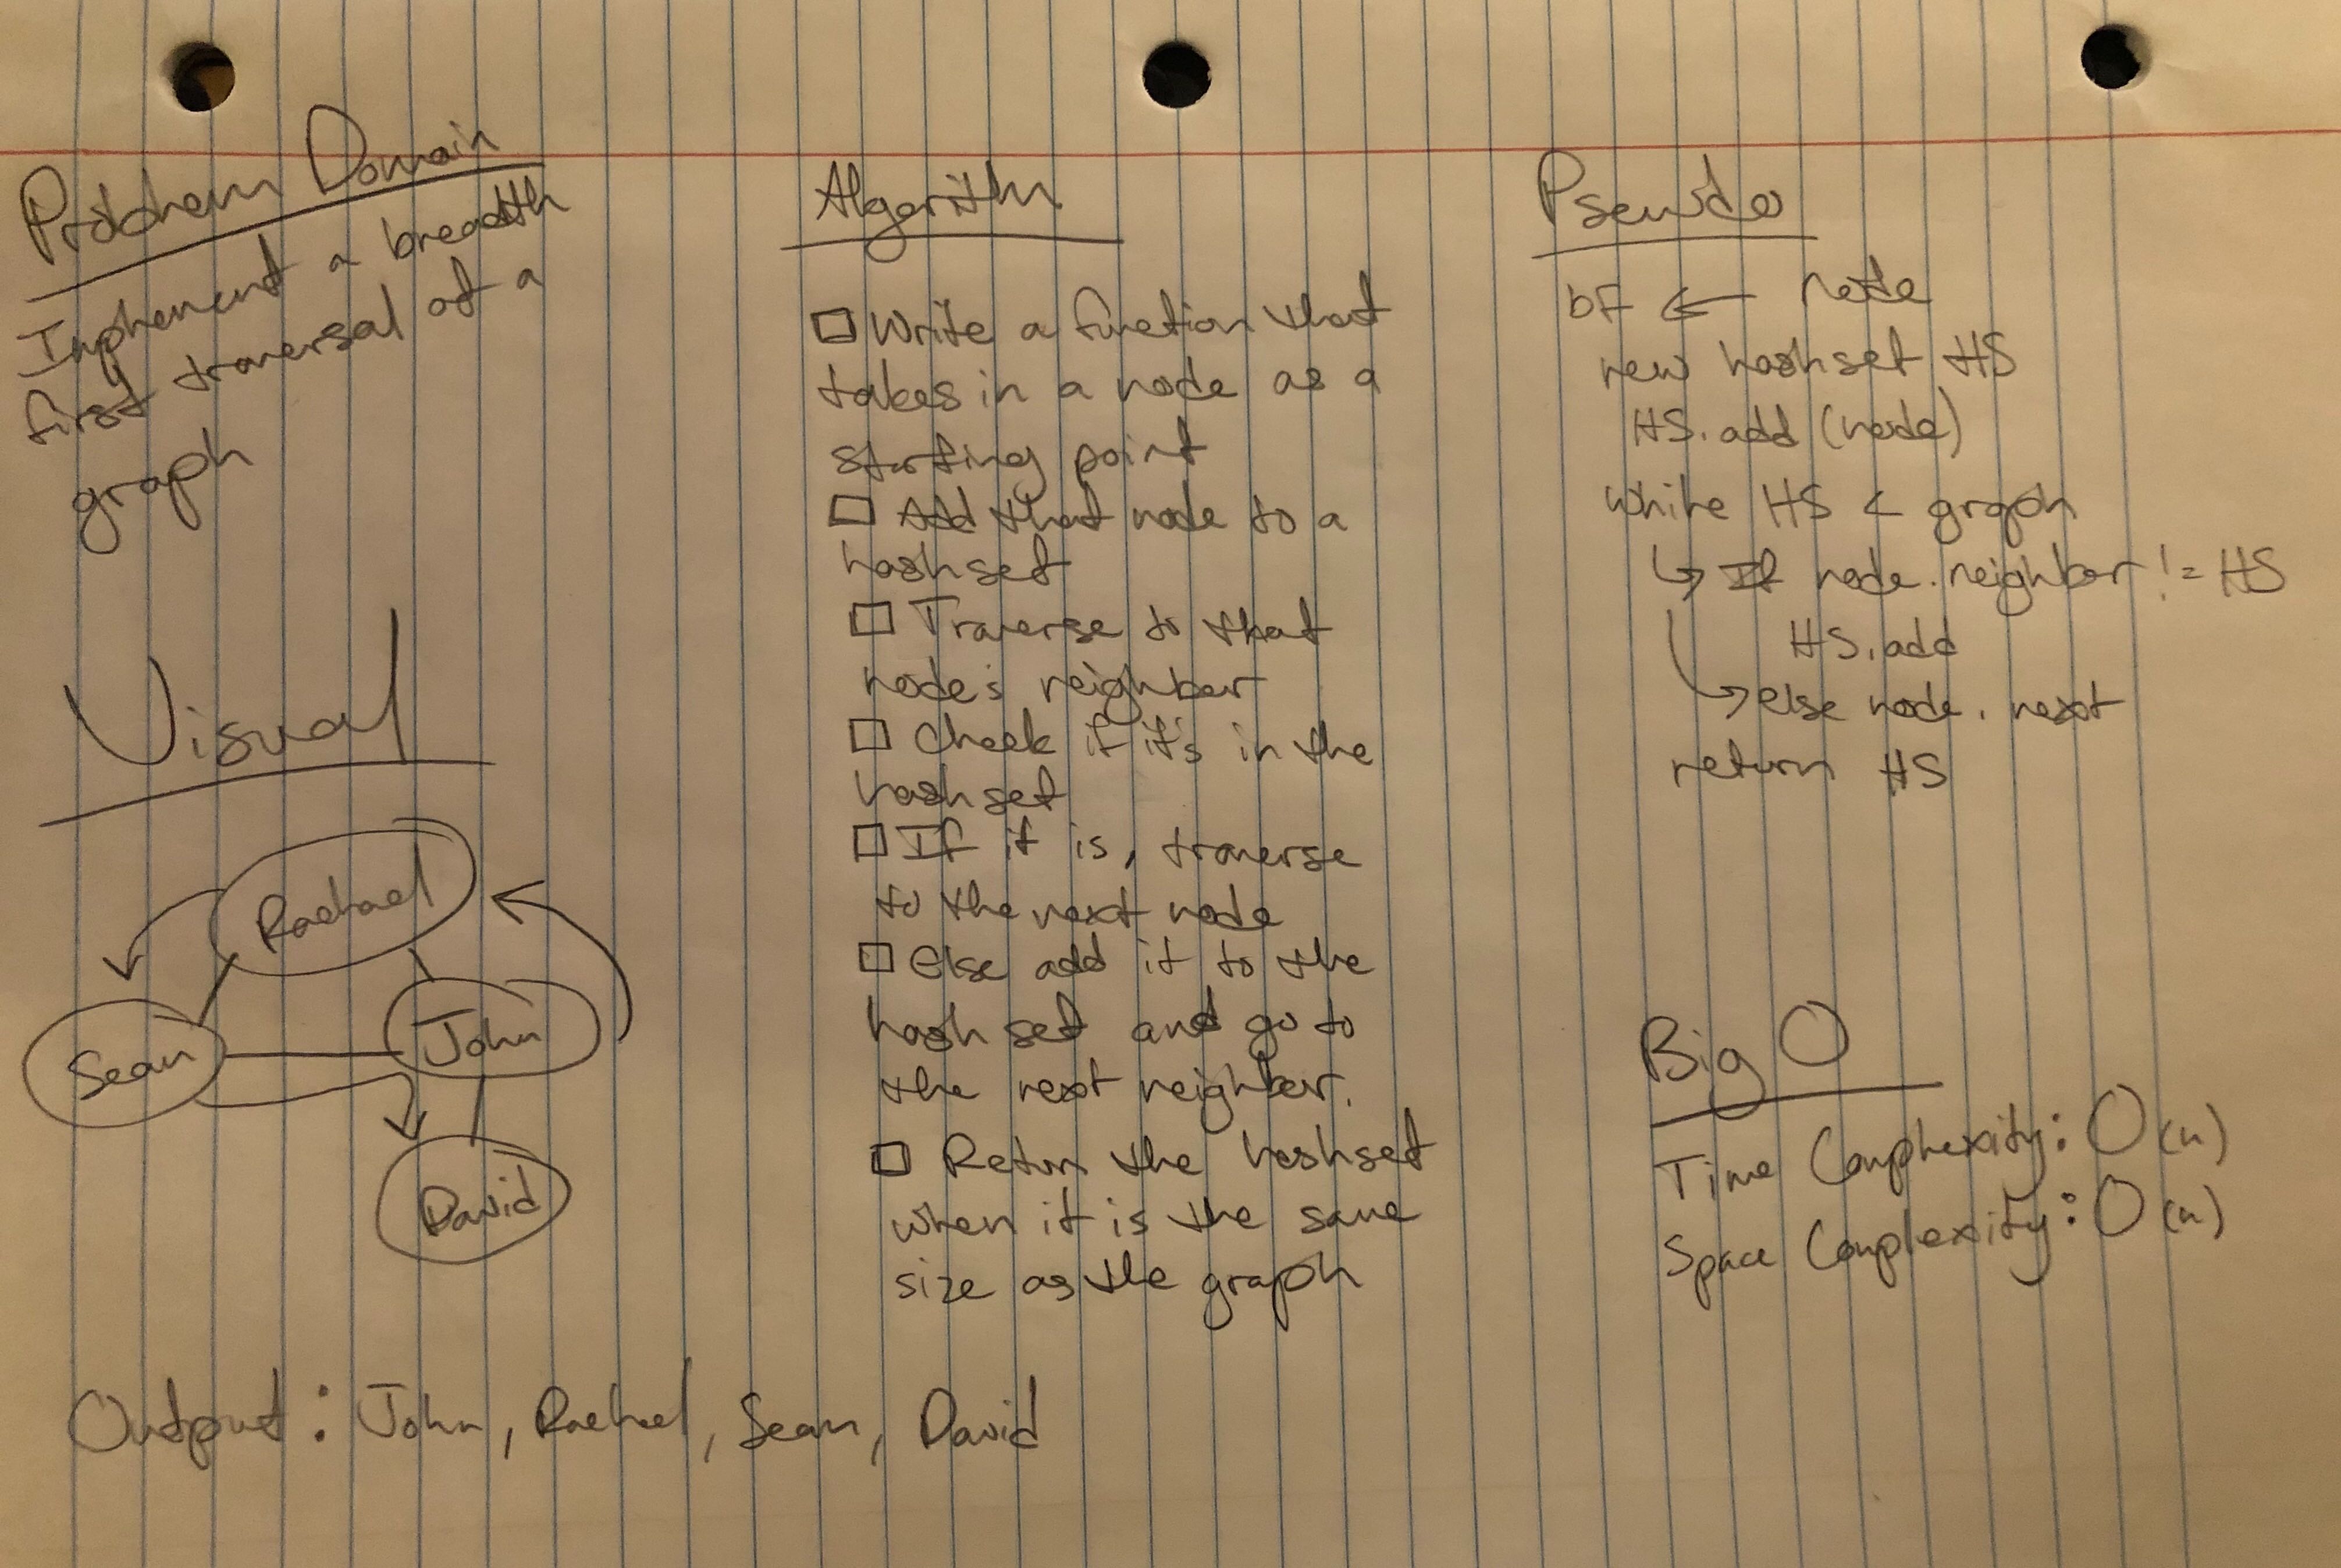 Problem Domain
Implement a breadth
first traversal of a
graph
Visual
Rachael
Sean
John
David
Output: John, Rachael, Sean, David
Algorithm
Write a function that
takes in a node as a
starting point
Add that node to a
hashset
Traverse to that
node's neighbor
Check if it's in the
hashset
If it is, traverse
to the next node
Else add it to the
hashset and go to
the next neighbor.
Return the hashset
when it is the same
size as the graph
Pseudo
bF ← node
new hashset HS
HS.add (node)
while HS < graph
↳ If node.neighbor != HS
HS.add
↳ else node.next
return HS
Big O
Time Complexity: O(n)
Space Complexity: O(n)